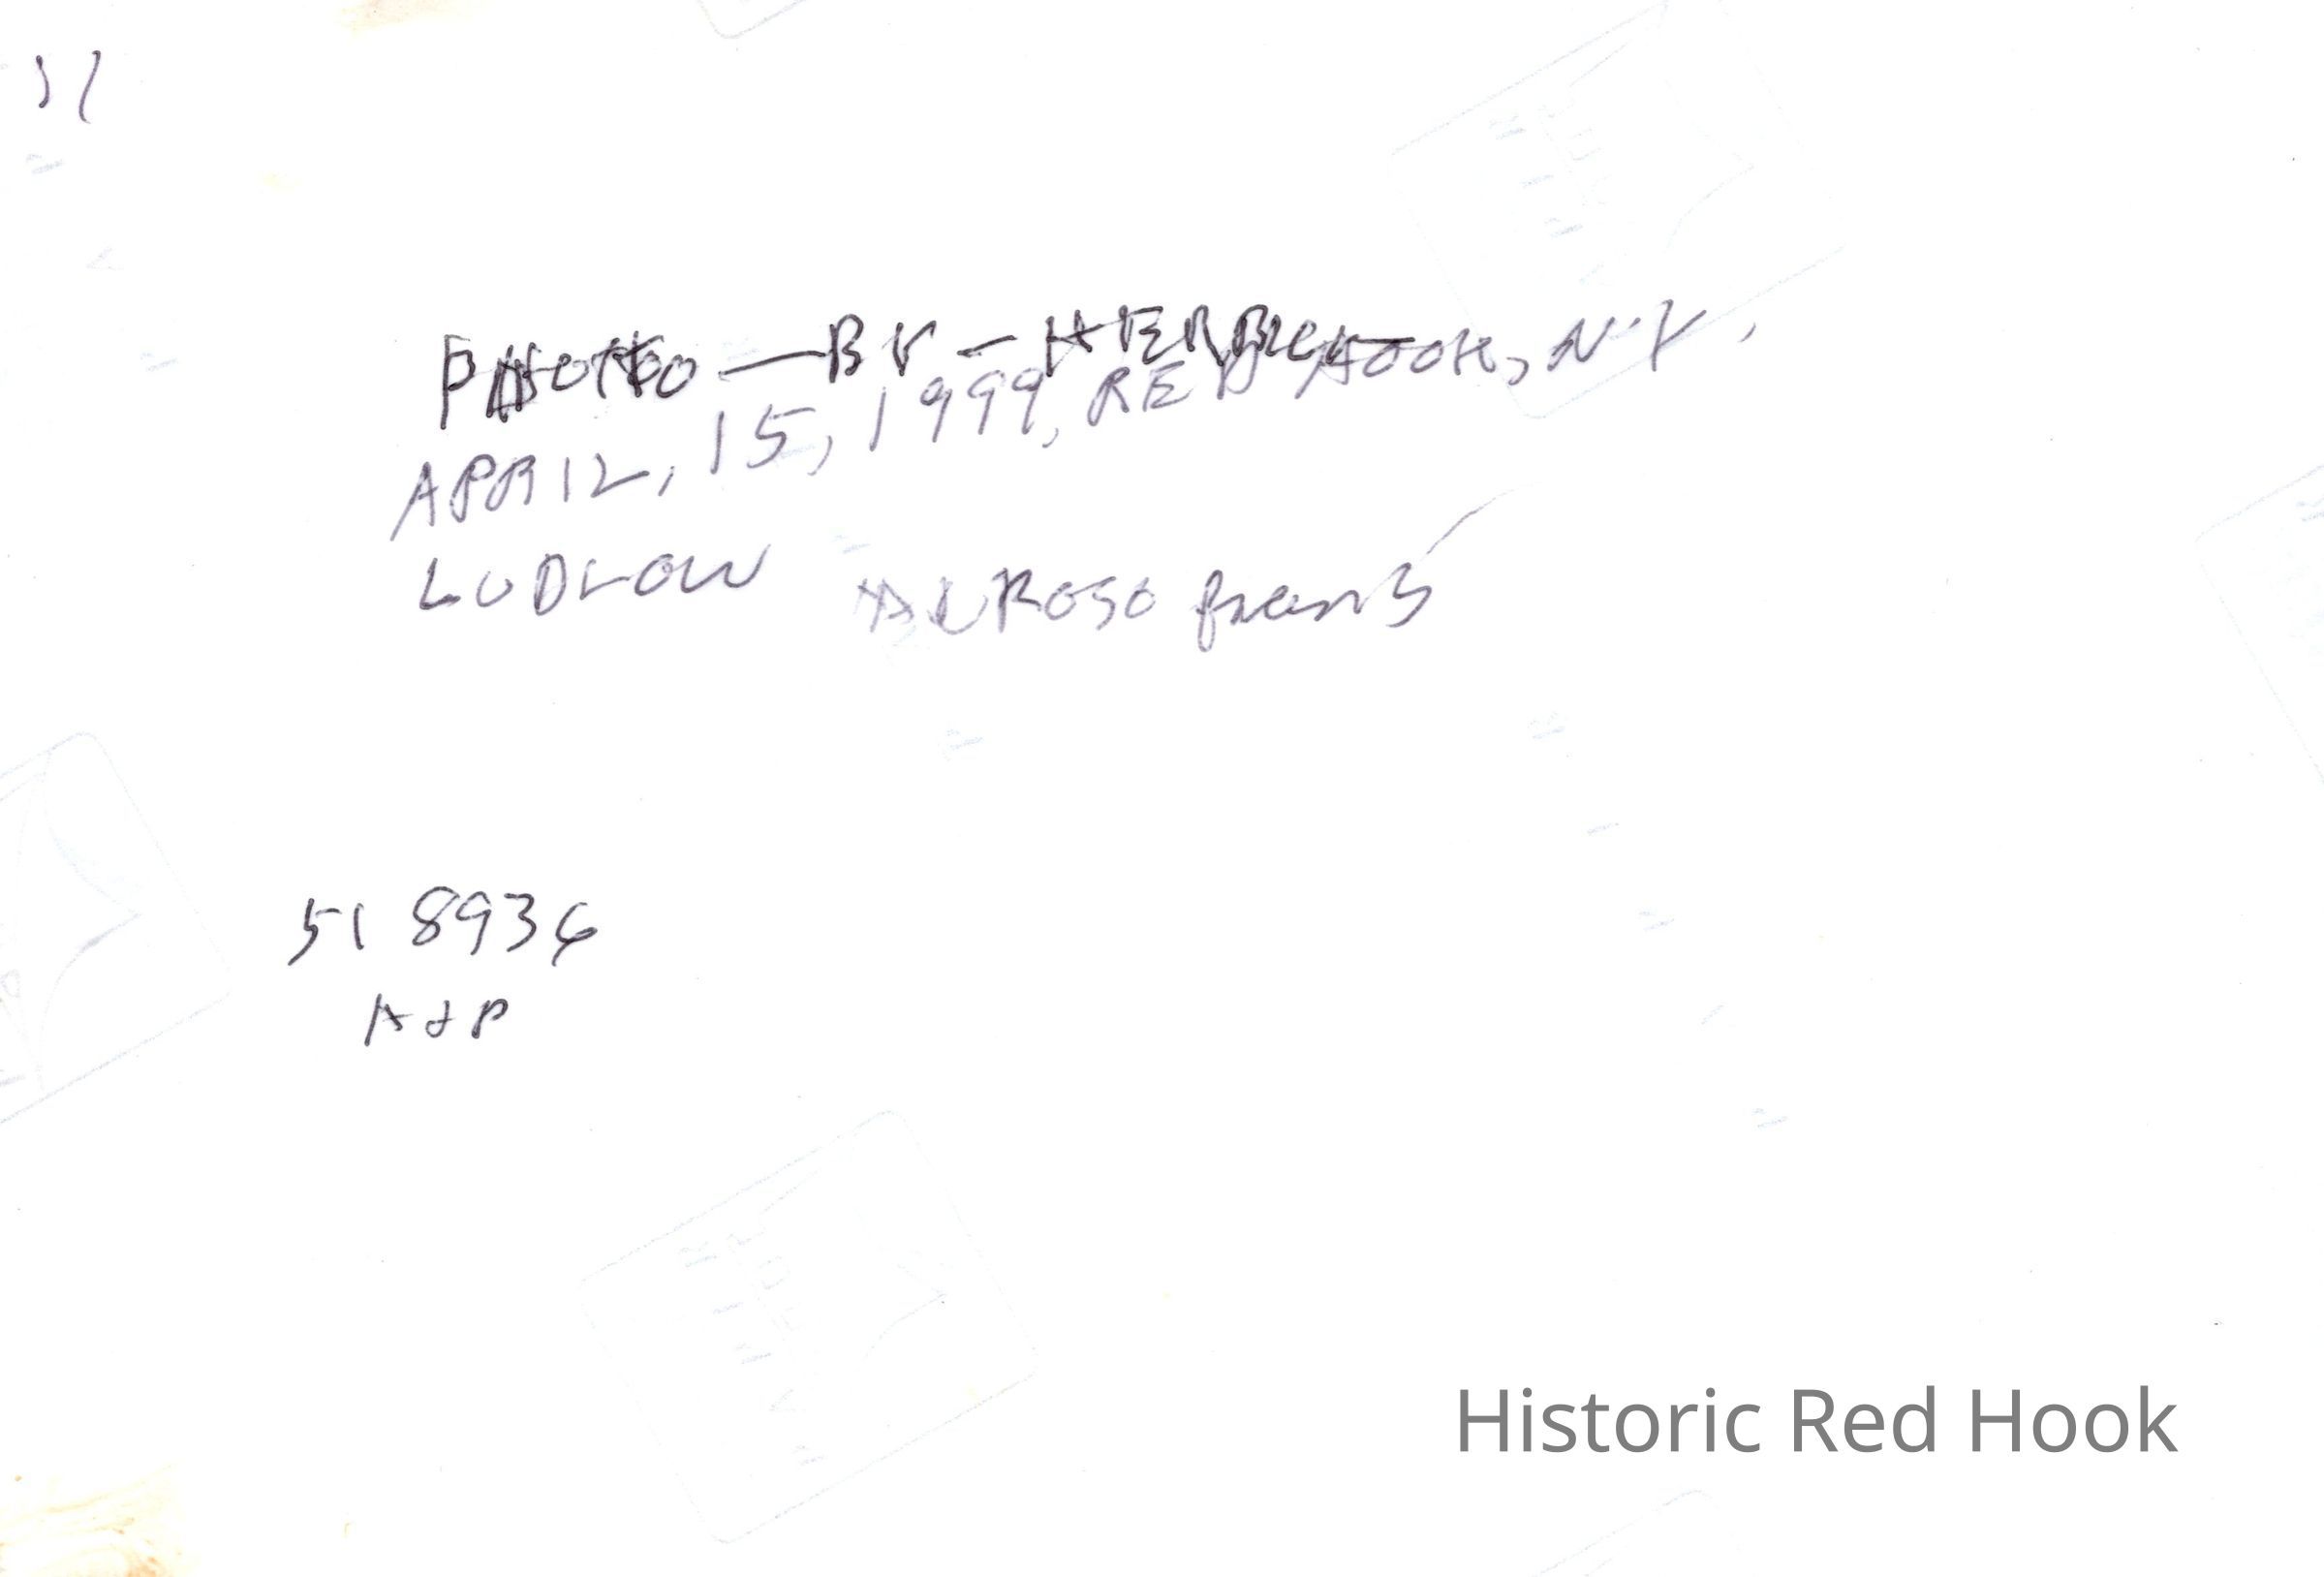 11
PHOTO — BY — HERB
APRIL, 15, 1999, RED HOOK, N.Y.
LUDLOW
51 8936
A & P
Historic Red Hook